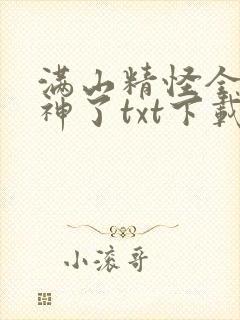 满山精怪全
神了txt下载
小滚哥